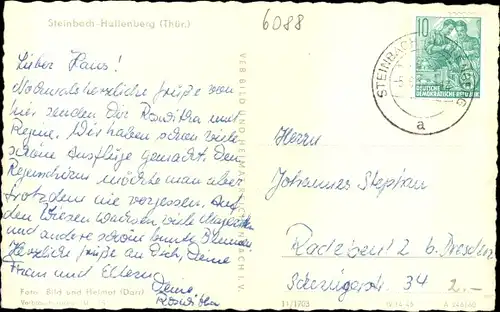 Steinbach-Hallenberg (Thür.)
6088
Lieber Hans!
Nochmals herzliche Grüße von
hier senden Dir Roswitha und
Regine. Wir haben schon viele
schöne Ausflüge gemacht. Den
Regenschirm möchte man aber
trotzdem nie vergessen. Auf
den Wiesen wachsen viele
und andere schöne bunte Blumen
Herzliche Grüße an Dich, Deine
Frau und Eltern
Deine
Roswitha
Foto: Bild und Heimat (Darr)
VEB BILD UND HEIMAT REICHENBACH I. V.
10
DEUTSCHE
DEMOKRATISCHE REPUBLIK
STEINBACH-HALLENBERG
a
Herrn
Johannes Stephan
Radebeul 2 b. Dresden
34
2.-
11/1703